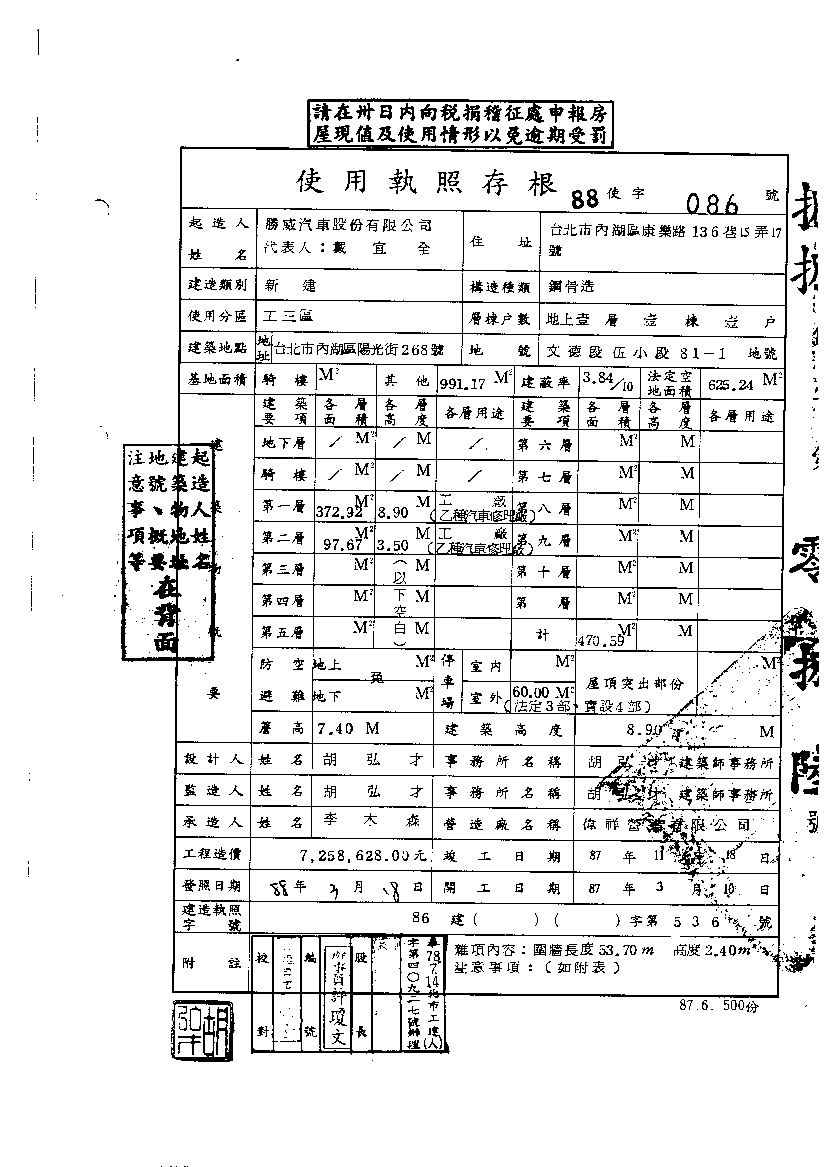 請在卅日內向稅捐稽征處申報房
屋現值及使用情形以免逾期受罰
使用執照存根 88 使字 086 號
起造人姓名 勝威汽車股份有限公司
代表人：戴宜全
住址 台北市內湖區康樂路136巷15弄17
號
建造類別 新建 構造種類 鋼骨造
使用分區 工三區 層棟戶數 地上壹層壹棟壹戶
建築地點 地址 台北市內湖區陽光街268號 地號 文德段伍小段81-1 地號
基地面積 騎樓 M² 其他 991.17 M² 建蔽率 3.84/10 法定空地面積 625.24 M²
建築要項 各層面積 各層高度 各層用途 建築要項 各層面積 各層高度 各層用途
地下層 / M² / M / 第六層 M² M
騎樓 / M² / M / 第七層 M² M
第一層 372.92 M² 8.90 M 工廠(乙種汽車修理廠) 第八層 M² M
第二層 97.67 M² 3.50 M 工廠(乙種汽車修理廠) 第九層 M² M
第三層 M² (以 M 第十層 M² M
第四層 M² 下空 M 第 層 M² M
第五層 M² 白) M 計 470.59 M² M
建築物概要
防空避難 地上 M² 免 地下 M² 停車場 室內 M² 屋頂突出部份 M²
室外 60.00 M²
(法定3部、實設4部)
簷高 7.40 M 建築高度 8.90 M
設計人 姓名 胡弘才 事務所名稱 胡弘才建築師事務所
監造人 姓名 胡弘才 事務所名稱 胡弘才建築師事務所
承造人 姓名 李木森 營造廠名稱 偉祥營造有限公司
工程造價 7,258,628.00元 竣工日期 87年11月18日
發照日期 88年3月18日 開工日期 87年3月10日
建造執照字號 86 建( )( )字第536號
附註 校對 編號 股長
雜項內容：圍牆長度53.70m 高度2.40m
注意事項：(如附表)
辦事員許瓊文
78 7 14 北市工建(人)
字第四〇九二七號辦理
87.6. 500份
起造人姓名
建築物地址
地號、概要
注意事項等
在背面
胡弘才
零
陸
號